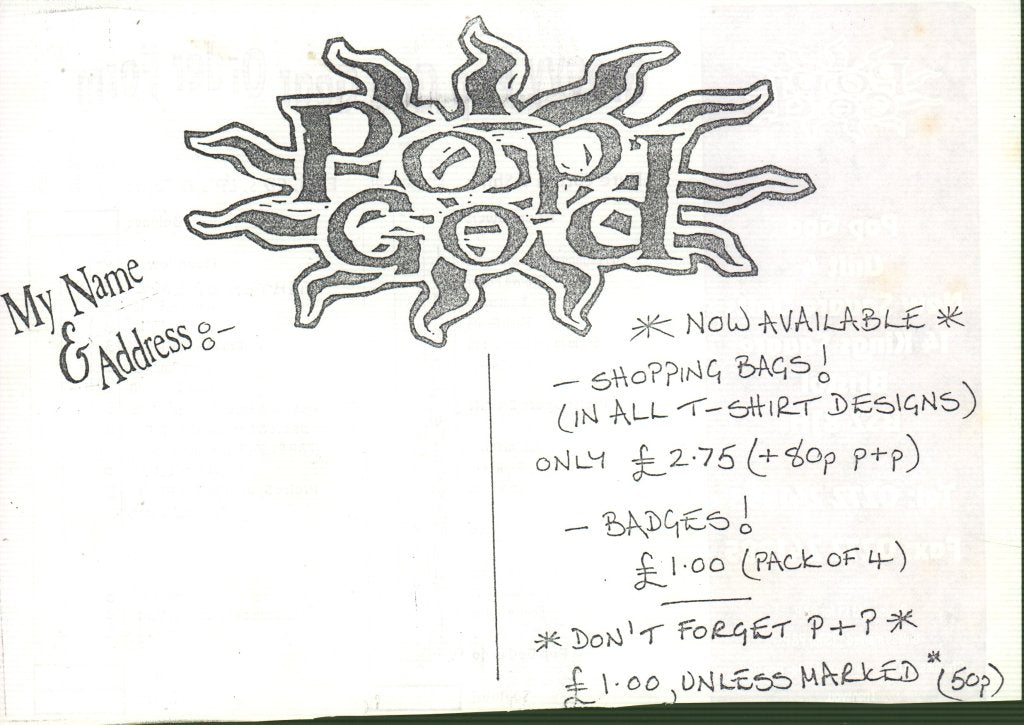 POP
GOD
My Name
& Address :-
* NOW AVAILABLE *
- SHOPPING BAGS!
(IN ALL T-SHIRT DESIGNS)
ONLY £2.75 (+80p p+p)
- BADGES!
£1.00 (PACK OF 4)
* DON'T FORGET P+P *
£1.00, UNLESS MARKED * (50p)